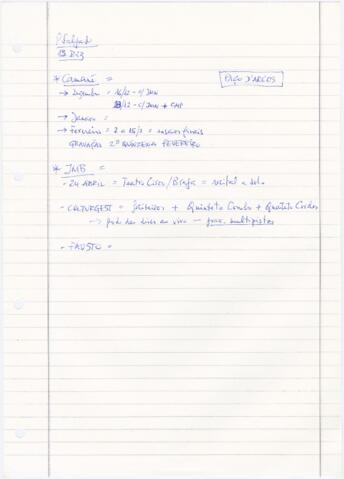 * Camané =
PAÇO D'ARCOS
→ Dezembro = 16/12 - c/ JMB
/12 - c/ JMB + CMP
→ Janeiro =
→ Fevereiro = 2 a 15/2 = ensaios finais
GRAVAÇÃO 2ª QUINZENA FEVEREIRO
* JMB =
- 24 ABRIL = Teatro Circo / Braga = recital a solo.
- CULTURGEST = + Quinteto Combo + Quarteto Cordas
→ pode dar disco ao vivo — grav. multipistas
- FAUSTO =